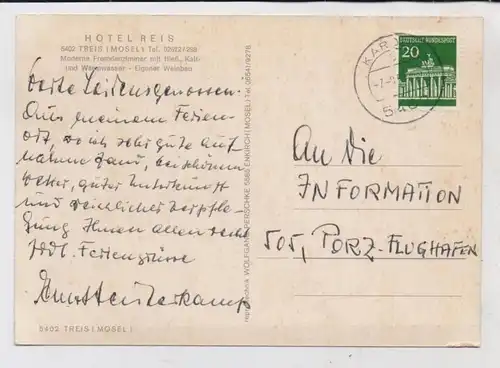 HOTEL REIS
5402 TREIS (MOSEL) Tel. 02672/268
Moderne Fremdenzimmer mit fließ. Kalt-
und Warmwasser - Eigener Weinbau
Werte Leidensgenossen.
Aus meinem Ferien-
ort, wo ich sehr gute Auf-
nahme fand, bei schönem
Wetter, guter Unterkunft
und reichlicher Verpfle-
gung Ihnen allen recht
herzl. Feriengrüsse
5402 TREIS (MOSEL)
WOLFGANG 5585 ENKIRCH (MOSEL) Tel. 06541/9276
DEUTSCHE BUNDESPOST
20
KAR
An Die
INFORMATION
505, PORZ-FLUGHAFEN